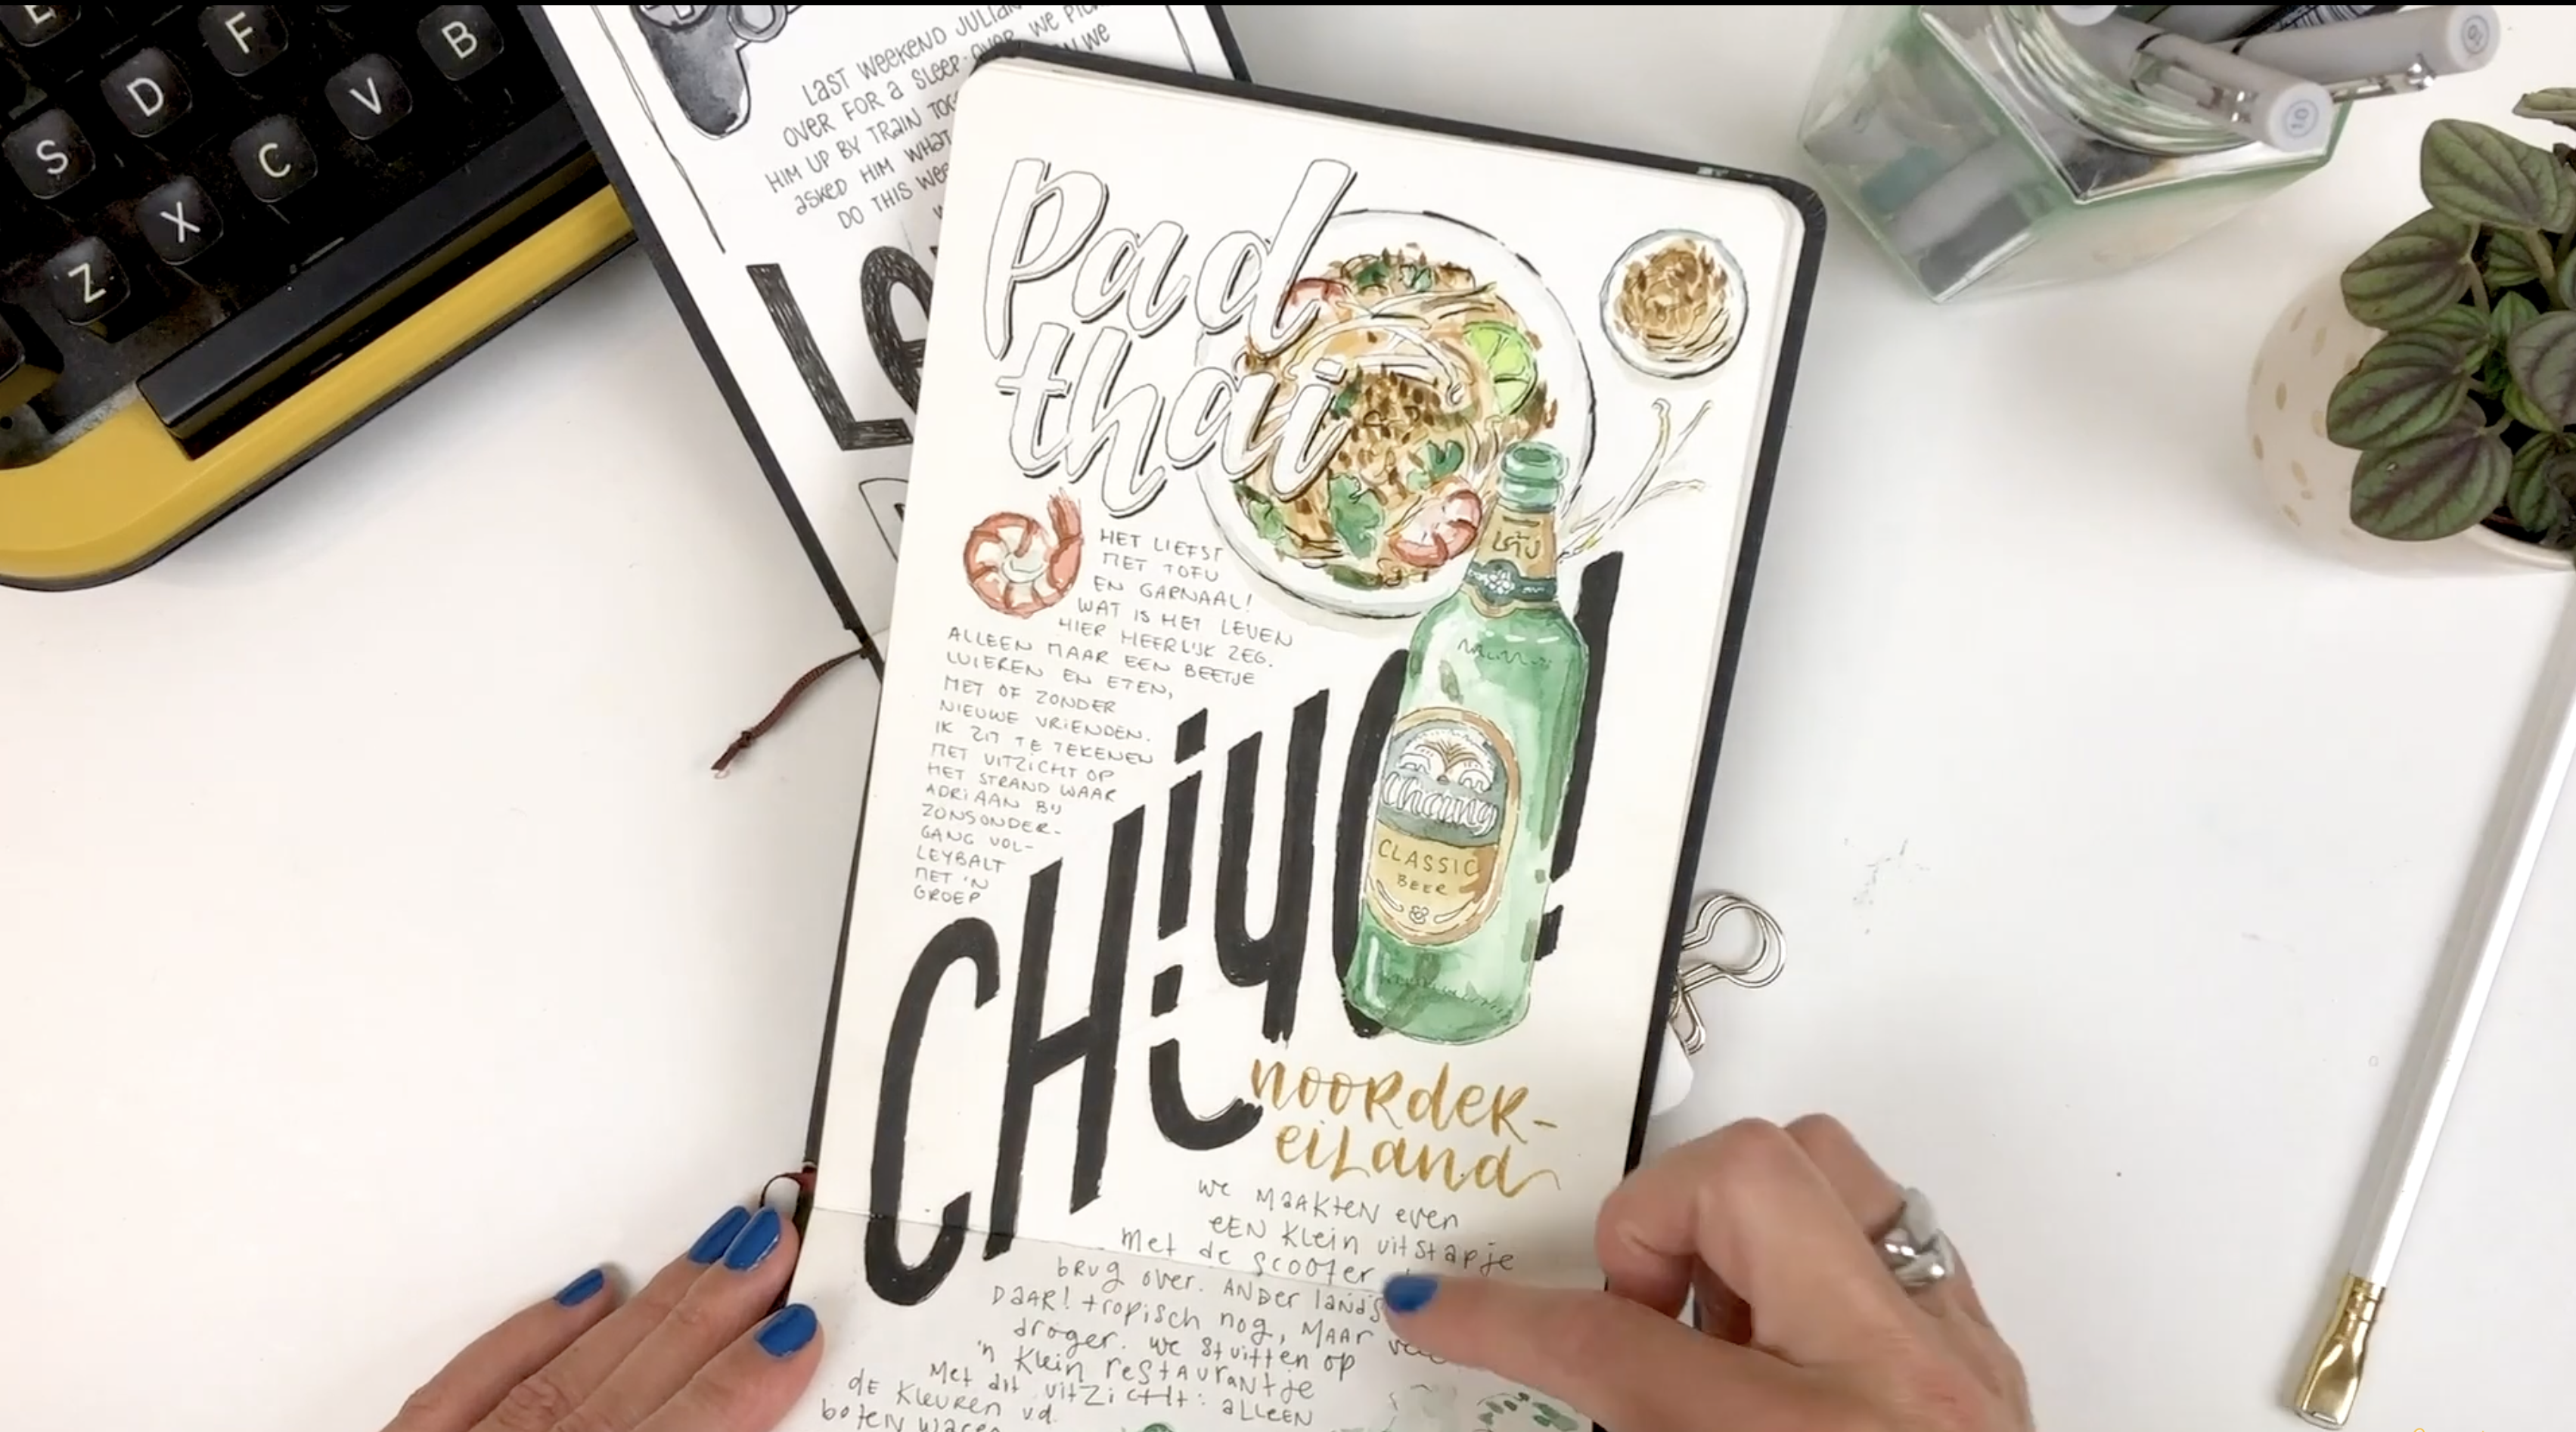 F
B
D
V
S
C
X
Z
LAST WEEKEND JULIAN
OVER FOR A SLEEP-OVER. WE
HIM UP BY TRAIN
WE
ASKED HIM WHAT
DO THIS
Pad
thai
HET LIEFST
MET TOFU
EN GARNAAL!
WAT IS HET LEVEN
HIER HEERLIJK ZEG.
ALLEEN MAAR EEN BEETJE
LUIEREN EN ETEN,
MET OF ZONDER
NIEUWE VRIENDEN.
IK ZIT TE TEKENEN
MET UITZICHT OP
HET STRAND WAAR
ADRIAAN BIJ
ZONSONDER-
GANG VOL-
LEYBALT
MET 'N
GROEP
Chang
CLASSIC
BEER
CHiiYO!
NOORDER-
EILAND
We MAAKTEN even
EEN Klein uitstapje
Met de scooter
BRUG over. ANDer lands
DAAR! tropisch nog, MAAR
droger. We stuitten op
'n Klein restaurantje
Met dit uitzicht: alleen
de Kleuren vd.
boten waren